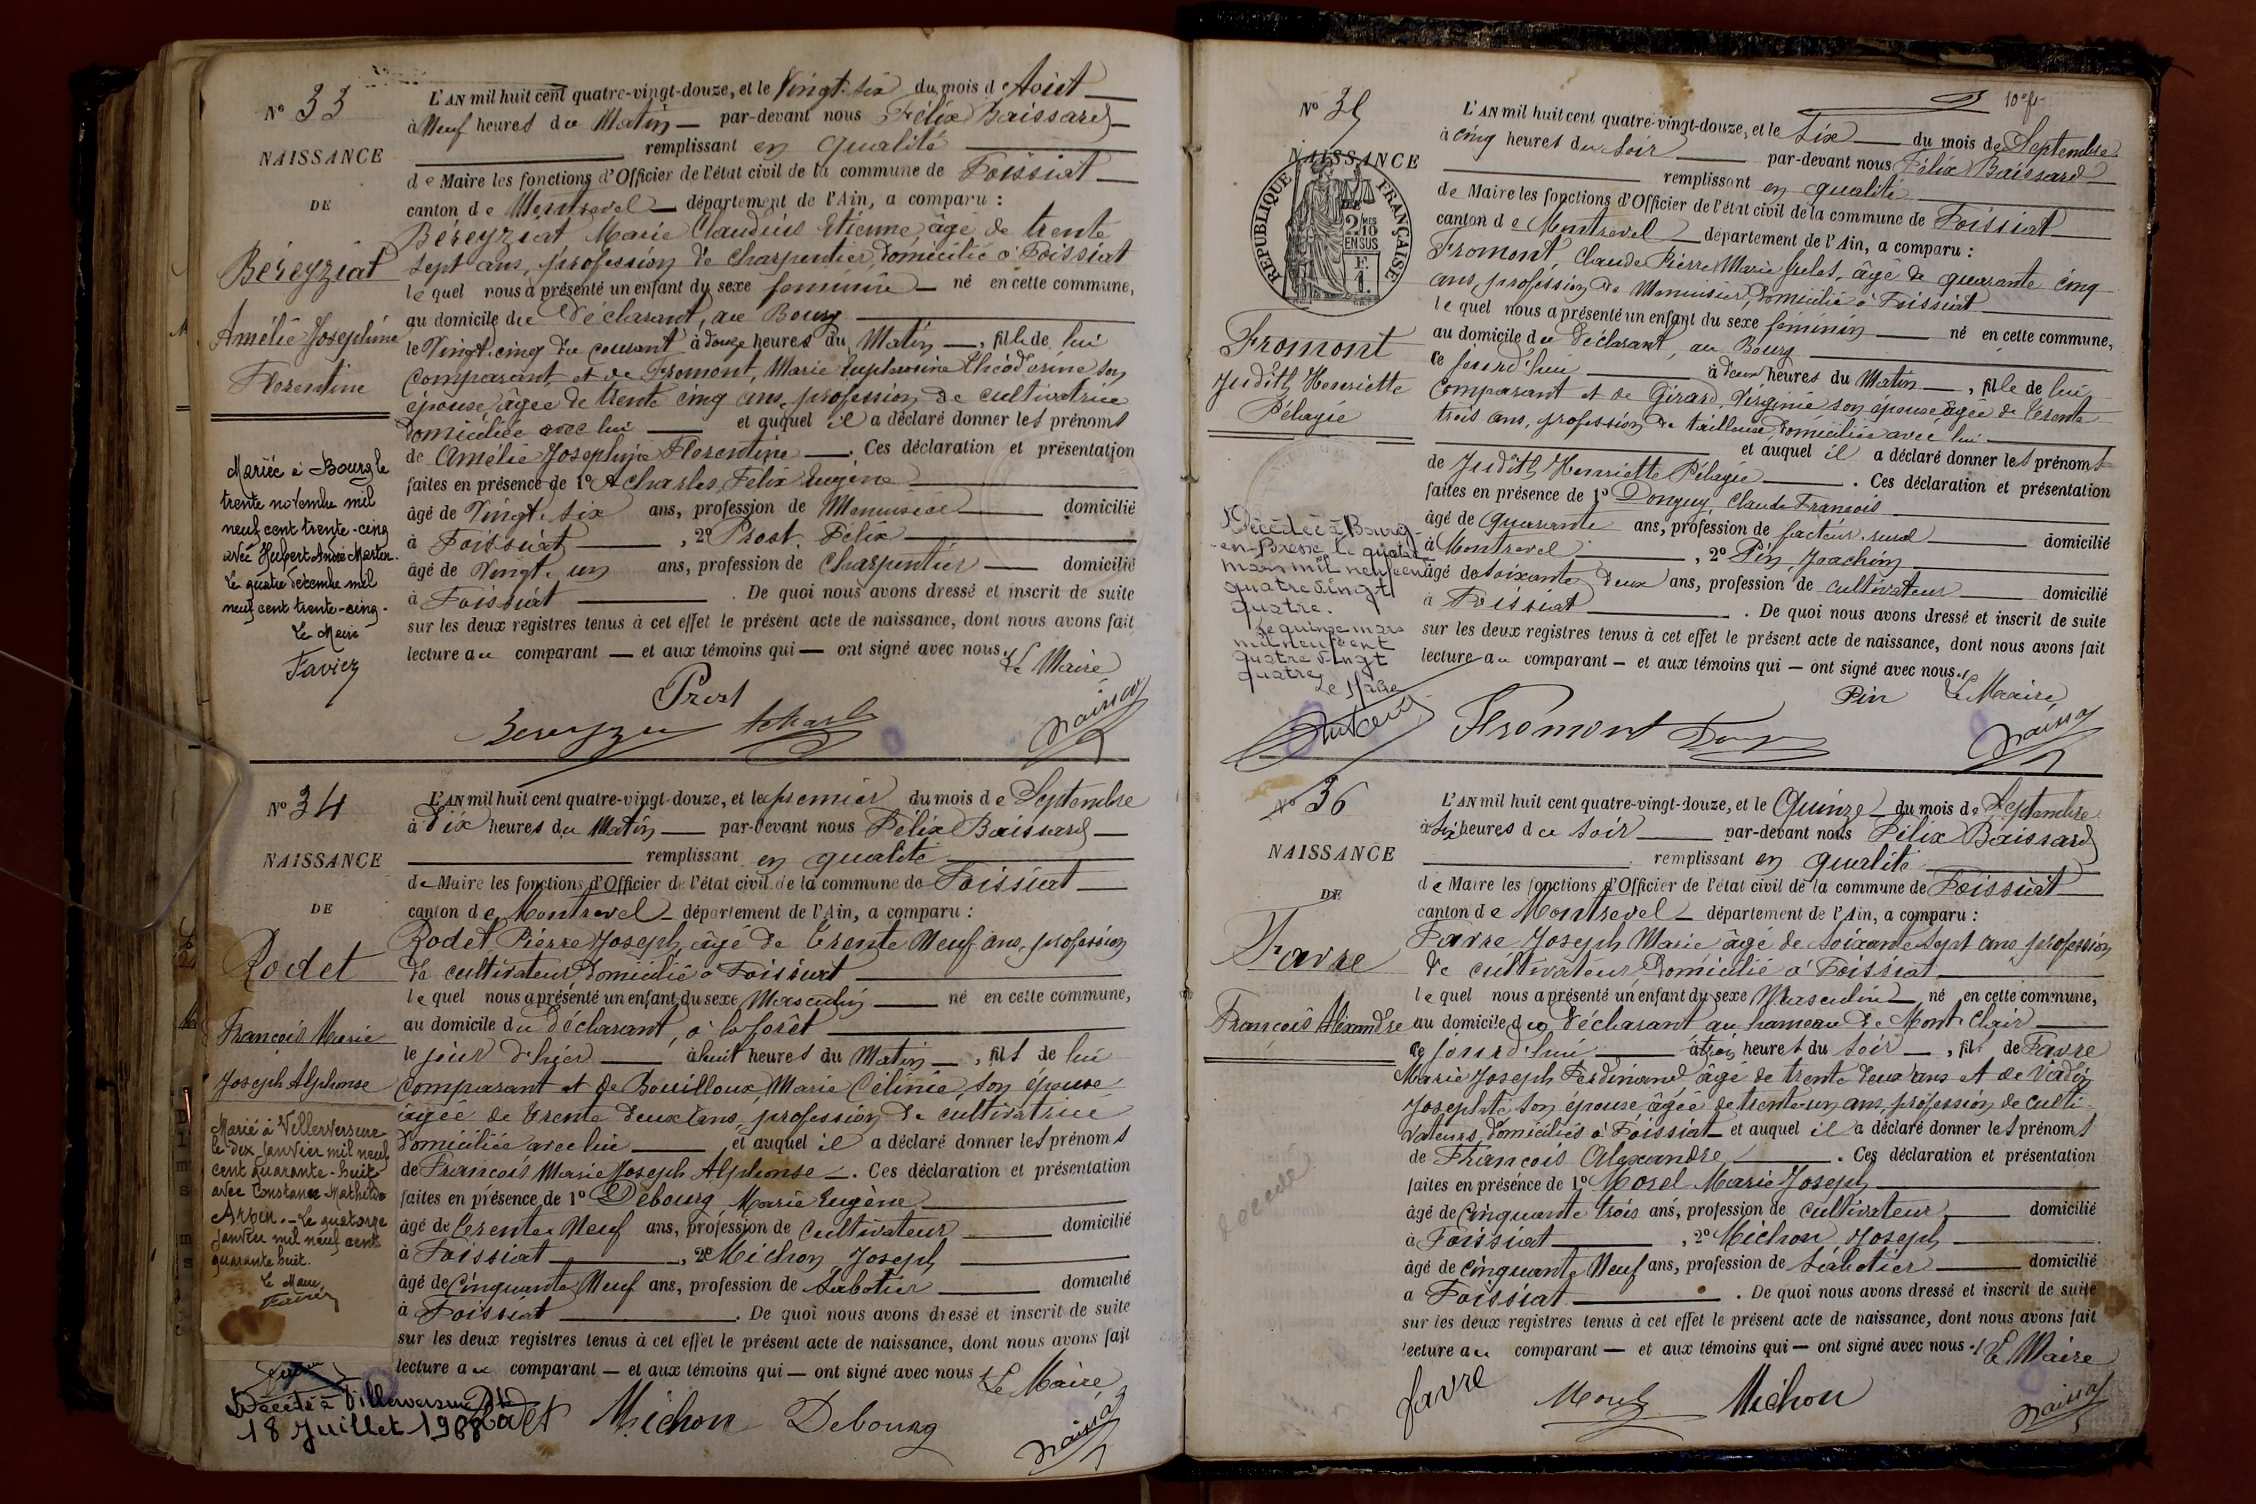 N° 33
NAISSANCE
DE
Béreyziat
Amélie Joséphine
Florentine
Mariée à Bourg le
trente novembre mil
neuf cent trente-cinq
avec Hubert André Martin.
Le quatre décembre mil
neuf cent trente-cinq.
Le Maire
Favier
L'AN mil huit cent quatre-vingt-douze, et le Vingt-six du mois d'Août
à Neuf heures du Matin par-devant nous Félix Baissard
remplissant en qualité
de Maire les fonctions d'Officier de l'état civil de la commune de Foissiat
canton de Montrevel département de l'Ain, a comparu :
Béreyziat Marie Claudius Etienne âgé de trente
sept ans, profession de Charpentier, domicilié à Foissiat
lequel nous a présenté un enfant du sexe féminin né en cette commune,
au domicile du Déclarant, au Bourg
le Vingt-cinq du courant à douze heures du Matin, fille de lui
comparant et de Fromont, Marie Euphrosine Théodorine son
épouse, âgée de trente cinq ans, profession de cultivatrice
domiciliée avec lui et auquel il a déclaré donner les prénoms
de Amélie Joséphine Florentine. Ces déclaration et présentation
faites en présence de 1° Acharles, Félix Eugène
âgé de Vingt-six ans, profession de Menuisier domicilié
à Foissiat, 2° Prost Félix
âgé de Vingt-un ans, profession de Charpentier domicilié
à Foissiat. De quoi nous avons dressé et inscrit de suite
sur les deux registres tenus à cet effet le présent acte de naissance, dont nous avons fait
lecture au comparant et aux témoins qui ont signé avec nous.
Le Maire
Prost
Bereyziat Acharl Baissard
N° 34
NAISSANCE
DE
Rodet
François Marie
Joseph Alphonse
Marié à Villereversure
le dix janvier mil neuf
cent quarante-huit
avec Constance Mathilde
Arpin. Le quatorze
janvier mil neuf cent
quarante huit.
Le Maire
Favier
Décédé à Villereversure
18 Juillet 1988
L'AN mil huit cent quatre-vingt-douze, et le premier du mois de Septembre
à Dix heures du Matin par-devant nous Félix Baissard
remplissant en qualité
de Maire les fonctions d'Officier de l'état civil de la commune de Foissiat
canton de Montrevel département de l'Ain, a comparu :
Rodet, Pierre Joseph, âgé de trente Neuf ans, profession
de cultivateur, domicilié à Foissiat
lequel nous a présenté un enfant du sexe Masculin né en cette commune,
au domicile du déclarant, à la forêt
le jour d'hier à huit heures du Matin, fils de lui
comparant et de Bouilloux, Marie Célinie, son épouse
âgée de trente deux ans, profession de cultivatrice
domiciliée avec lui et auquel il a déclaré donner les prénoms
de François Marie Joseph Alphonse. Ces déclaration et présentation
faites en présence de 1° Debourg Marie Eugène
âgé de trente Neuf ans, profession de Cultivateur domicilié
à Foissiat, 2° Michon Joseph
âgé de Cinquante Neuf ans, profession de Sabotier domicilié
à Foissiat. De quoi nous avons dressé et inscrit de suite
sur les deux registres tenus à cet effet le présent acte de naissance, dont nous avons fait
lecture au comparant et aux témoins qui ont signé avec nous
Le Maire
Rodet Michon Debourg Baissard
N° 35
NAISSANCE
RÉPUBLIQUE FRANÇAISE
2/10 MES
EN SUS
F.
1.
Fromont
Judith Henriette
Pélagie
Décédée à Bourg-
en-Bresse le quatorze
mars mil neuf cent
quatre vingt
quatre.
Le quinze mars
mil neuf cent
quatre vingt
quatre
Le Maire
10e f.
L'AN mil huit cent quatre-vingt-douze, et le Six du mois de Septembre
à cinq heures du soir par-devant nous Félix Baissard
remplissant en qualité
de Maire les fonctions d'Officier de l'état civil de la commune de Foissiat
canton de Montrevel département de l'Ain, a comparu :
Fromont, Claude Pierre Marie Jules, âgé de quarante cinq
ans, profession de Menuisier, domicilié à Foissiat
lequel nous a présenté un enfant du sexe féminin né en cette commune,
au domicile du Déclarant, au Bourg
ce jourd'hui à deux heures du Matin, fille de lui
comparant et de Girard, Virginie son épouse âgée de trente
trois ans, profession de tailleuse, domiciliée avec lui
et auquel il a déclaré donner les prénoms
de Judith Henriette Pélagie. Ces déclaration et présentation
faites en présence de 1° Donguy, Claude François
âgé de Quarante ans, profession de facteur rural domicilié
à Montrevel, 2° Pin, Joachim
âgé de soixante deux ans, profession de cultivateur domicilié
à Foissiat. De quoi nous avons dressé et inscrit de suite
sur les deux registres tenus à cet effet le présent acte de naissance, dont nous avons fait
lecture au comparant et aux témoins qui ont signé avec nous.
Pin Le Maire
Fromont Baissard
N° 36
NAISSANCE
DE
Favre
François Alexandre
décédé
L'AN mil huit cent quatre-vingt-douze, et le Quinze du mois de Septembre
à six heures du soir par-devant nous Félix Baissard
remplissant en qualité
de Maire les fonctions d'Officier de l'état civil de la commune de Foissiat
canton de Montrevel département de l'Ain, a comparu :
Favre Joseph Marie âgé de soixante sept ans, profession
de cultivateur, domicilié à Foissiat
lequel nous a présenté un enfant du sexe Masculin né en cette commune,
au domicile du déclarant au hameau de Mont-Clair
ce jourd'hui à trois heures du soir, fils de Favre
Marie Joseph Ferdinand, âgé de trente deux ans et de Verdin
Josephte son épouse âgée de trente-un ans, profession de culti-
vateurs, domiciliés à Foissiat et auquel il a déclaré donner les prénoms
de François Alexandre. Ces déclaration et présentation
faites en présence de 1° Morel Marie Joseph
âgé de Cinquante trois ans, profession de cultivateur domicilié
à Foissiat, 2° Michon Joseph
âgé de Cinquante Neuf ans, profession de Sabotier domicilié
à Foissiat. De quoi nous avons dressé et inscrit de suite
sur les deux registres tenus à cet effet le présent acte de naissance, dont nous avons fait
lecture au comparant et aux témoins qui ont signé avec nous.
Le Maire
favre Morel Michon Baissard